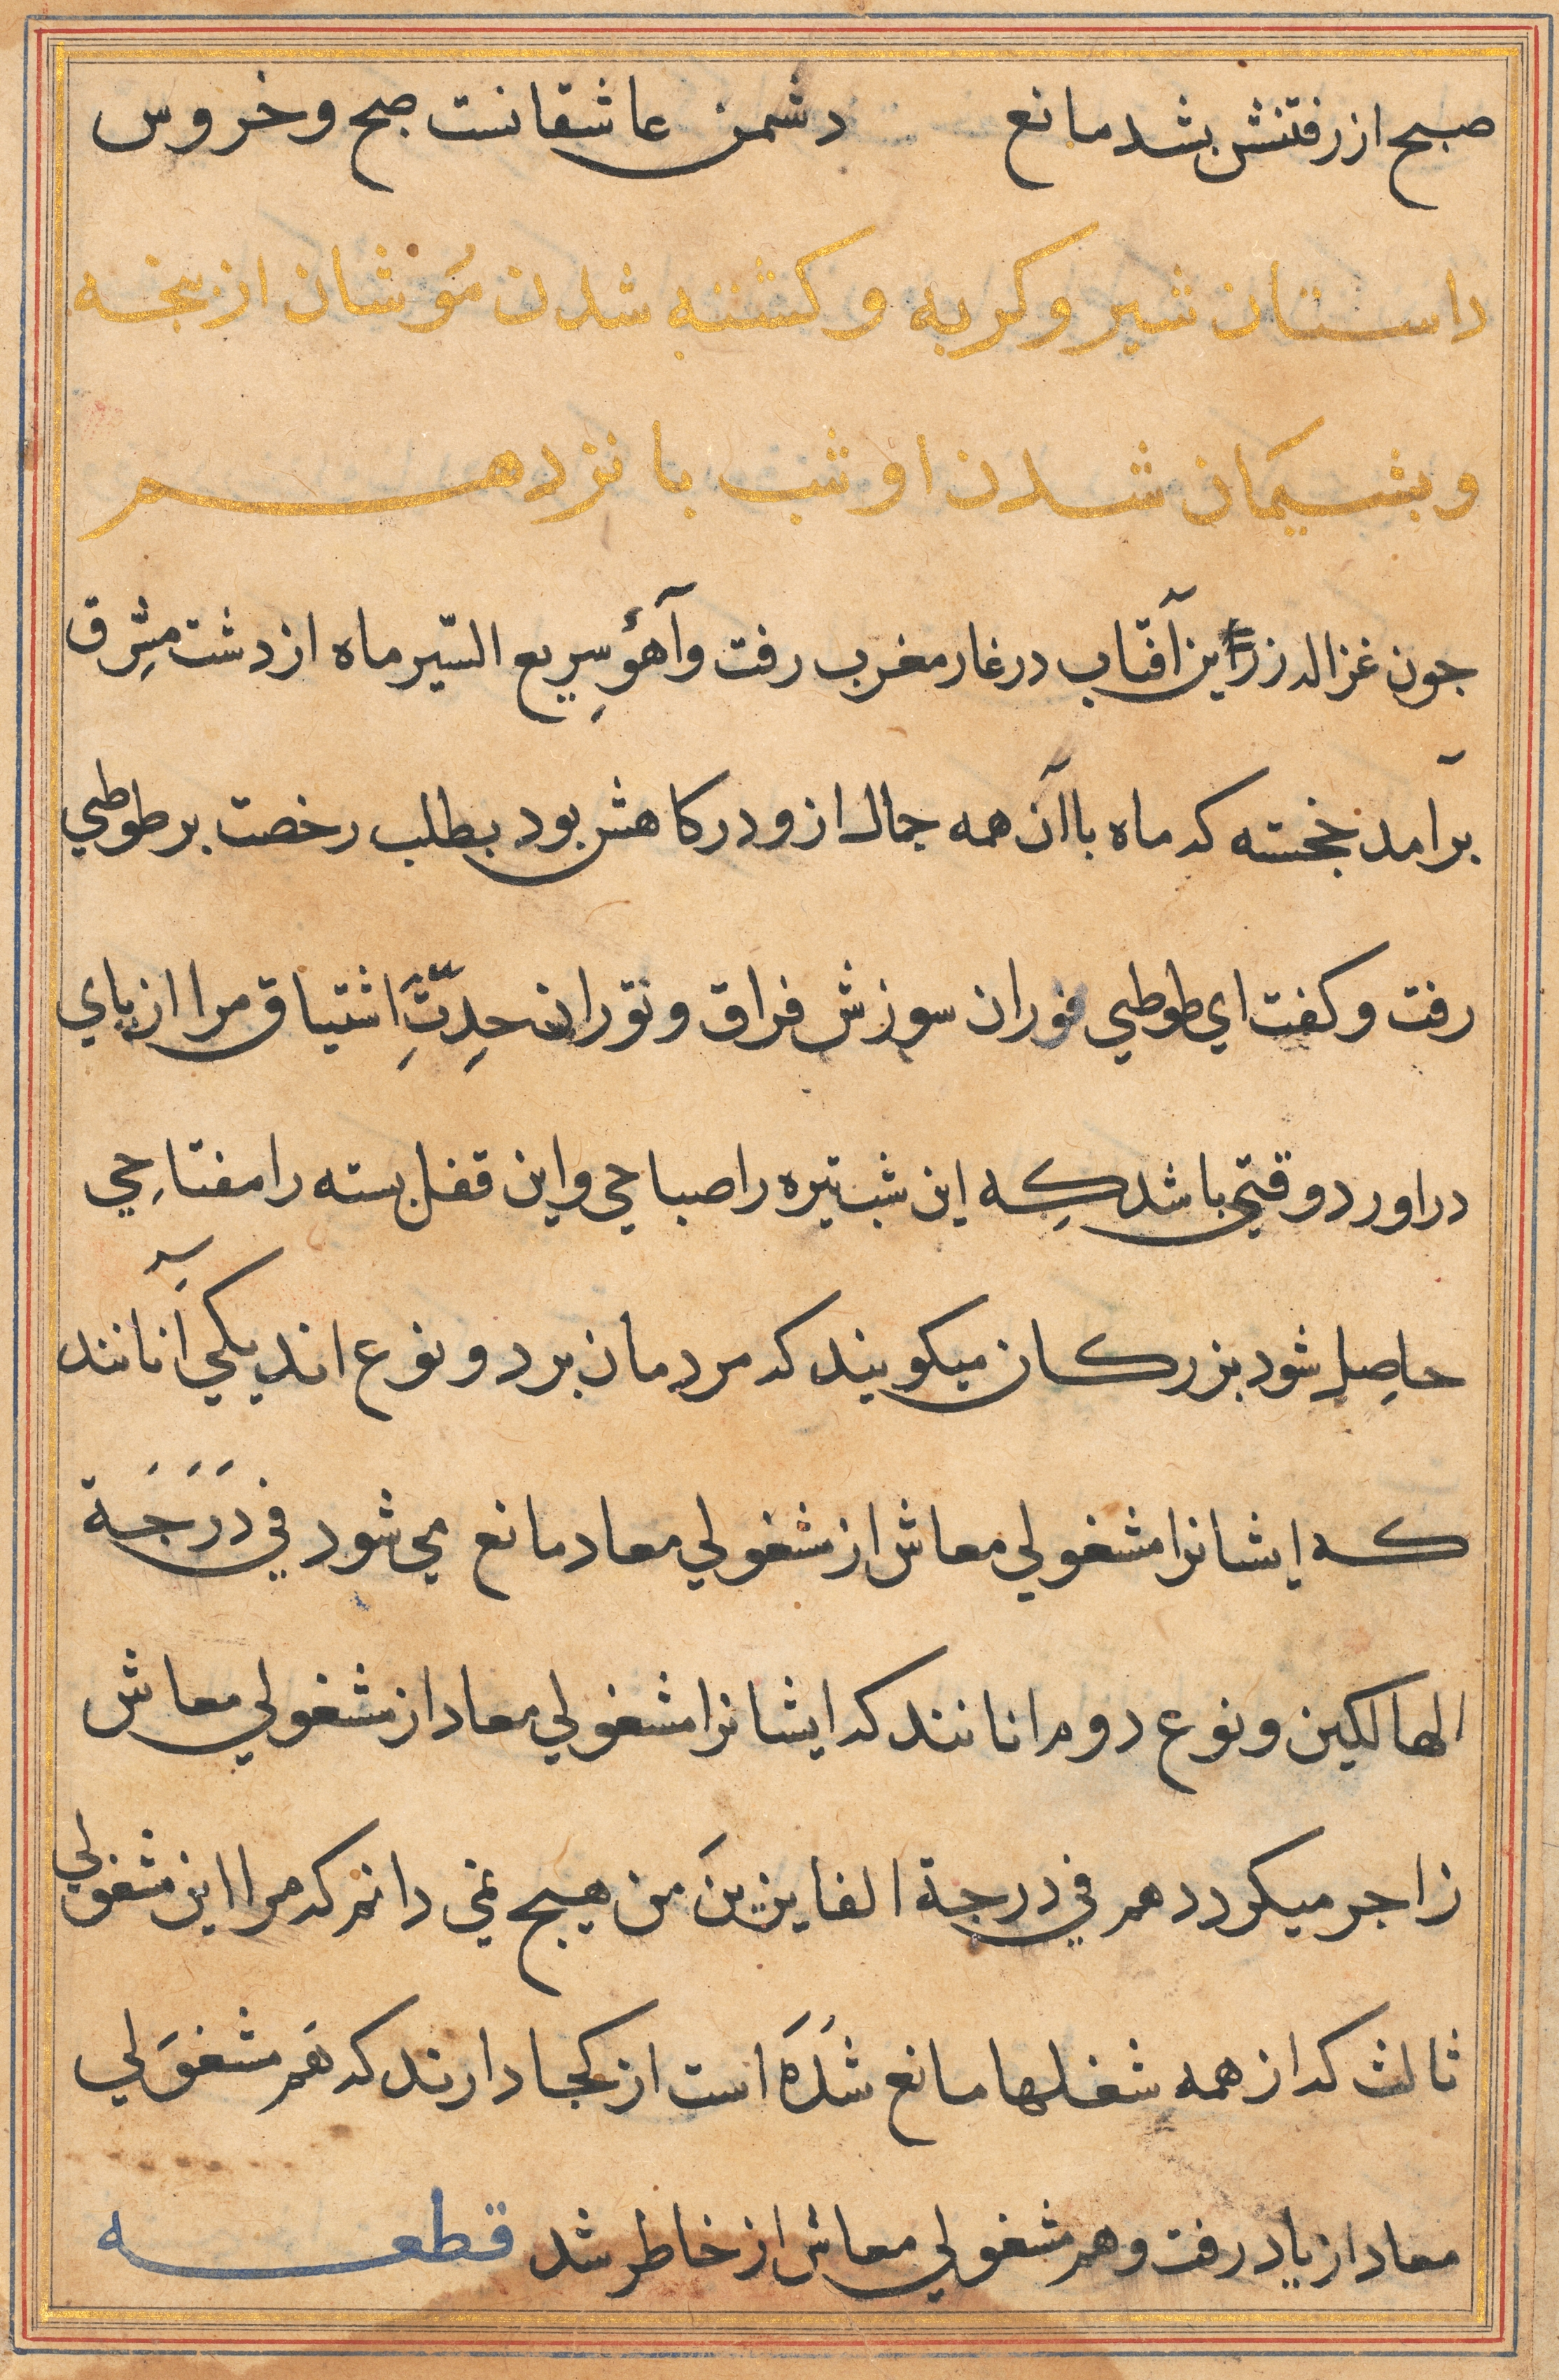 صبح از رفتنش بشد مانع دشمن عاشقانست صبح و خروس
داستان شير و كربه و كشته شدن موشان از بجه
و بشيمان شدن او شب بانزدهم
جون غزاله زرين آفتاب در غار مغرب رفت و آهوٴ سِريع السّير ماه از دشت مشِرق
برآمد خجسته كه ماه با آن همه جمال ازو در كاهش بود بطلب رخصت بر طوطي
رفت و كفت اي طوطي فوران سوزش فراق و توران حدِتَّ اشتياق مرا از پاي
دراورد وقتي باشد كِه اين شب تيره را صباحي و اين قفل بسته را مفتاحِي
حاصِل شود بزركان ميكويند كه مردمان بر دو نوع اند يكي آنانند
كه ايشانرا مشغولي معاش از مشغولي معاد مانع مي شود في دَرَجَة
الهالكين و نوع دوم انانند كه ايشانرا مشغولي معاد از مشغولي معاش
زاجر ميكردد هم في درجة الفايزينَ من هيج نمي دانم كه مرا اين مشغولي
ثالث كه از همه شغلها مانع شدَه است از كجا دارند كه هَم مشغوَلي
معاد از ياد رفت و هم مشغولي معاش از خاطر شد قطعه